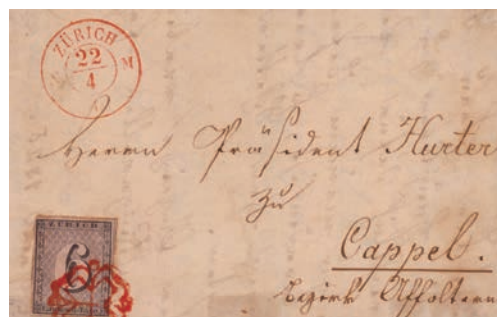 ZÜRICH M
22
4
Herrn Präsident Hurter
zu
Cappel.
Bezirk Affoltern
ZÜRICH
6